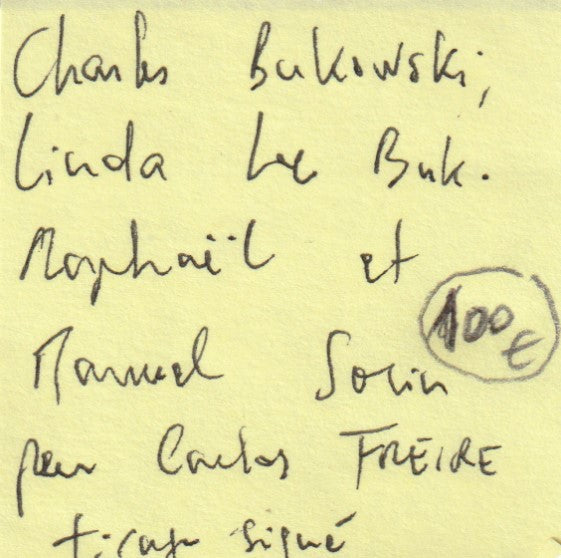 Charles Bukowski,
Linda Lee Buk.
Raphaël et
Manuel Sorin
100 €
par Carlos FREIRE
tirage signé